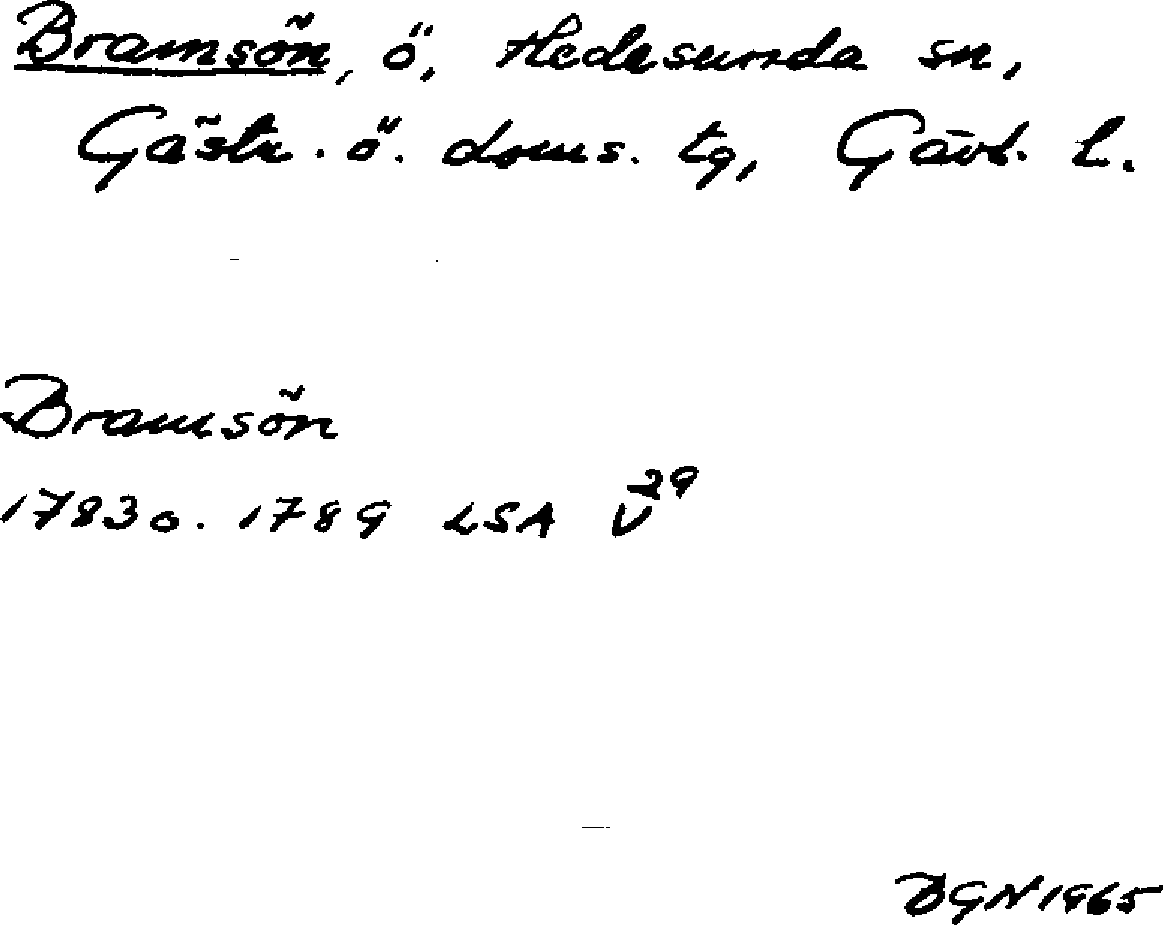 Bramsön, ö, Hedesunda sn,
Gästr. ö. doms. tg, Gävl. l.
Bramsön
1783 o. 1789 LSA V²⁹
BGN 1965